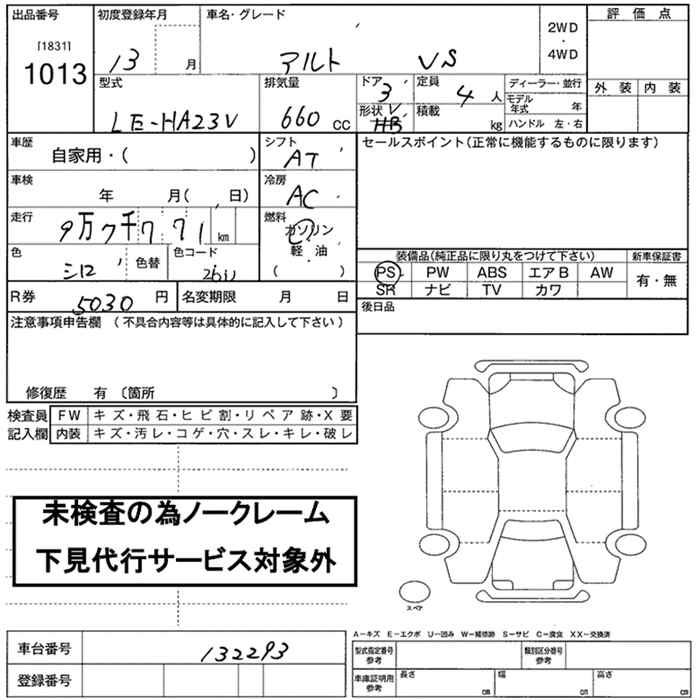 出品番号 初度登録年月 車名・グレード 評価点
[1831]
1013
13 月 アルト VS
2WD
・
4WD
外装 内装
型式 排気量 ドア 定員 ディーラー・並行
LE-HA23V 660 CC 3 4 人 モデル年式 年
形状 V HB 積載 kg ハンドル 左・右
車歴 シフト セールスポイント(正常に機能するものに限ります)
自家用・( ) AT
車検 冷房
年 月( 日) AC
走行 燃料
9万7千771 km ガソリン
軽油
( )
色 色替 色コード
シロ 26U
装備品(純正品に限り丸をつけて下さい) 新車保証書
PS PW ABS エアB AW 有・無
SR ナビ TV カワ
R券 5030 円 名変期限 月 日
後日品
注意事項申告欄 (不具合内容等は具体的に記入して下さい)
修復歴 有 〔箇所 〕
検査員 FW キズ・飛石・ヒビ割・リペア跡・X要
記入欄 内装 キズ・汚レ・コゲ・穴・スレ・キレ・破レ
未検査の為ノークレーム
下見代行サービス対象外
スペア
A-キズ E-エクボ U-凹み W-補修跡 S-サビ C-腐食 XX-交換済
車台番号 132293
型式指定番号 参考 類別区分番号 参考
登録番号
車庫証明用 参考 長さ cm 幅 cm 高さ cm